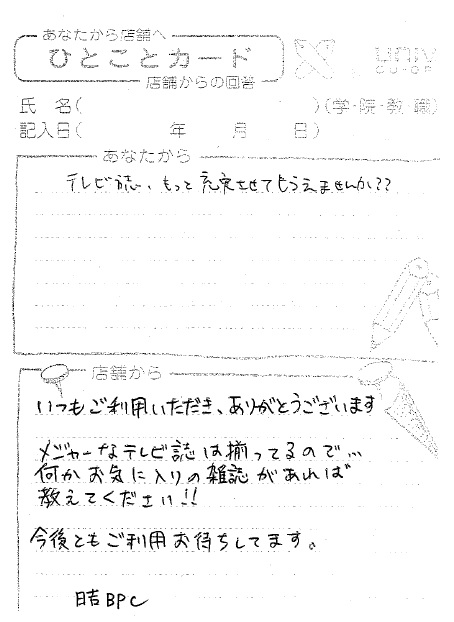 あなたから店舗へ
ひとことカード
店舗からの回答
UNIV
CO-OP
氏 名( )(学・院・教 職)
記入日( 年 月 日)
あなたから
テレビ誌、もっと充実させてもらえませんか??
店舗から
いつもご利用いただき、ありがとうございます
メジャーなテレビ誌は揃ってるので…
何かお気に入りの雑誌があれば
教えてください!!
今後ともご利用お待ちしてます。
日吉BPC